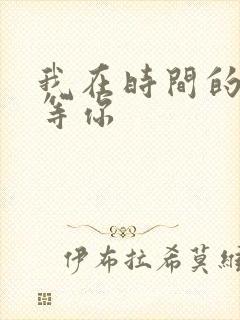 我在時間的
等你
伊布拉希莫維